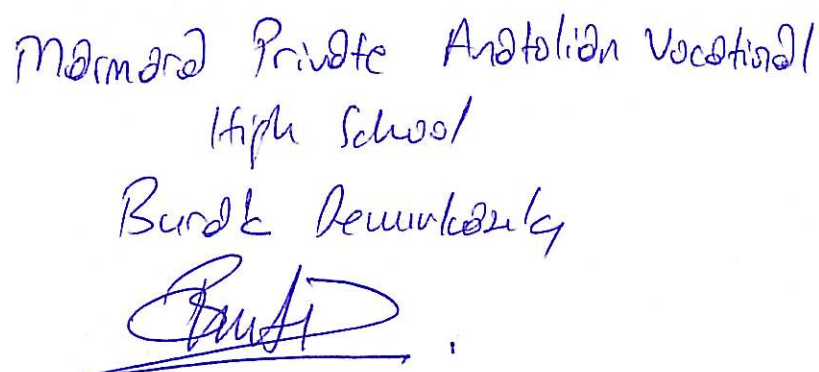 Marmara Private Anatolian Vocational
High School
Burak